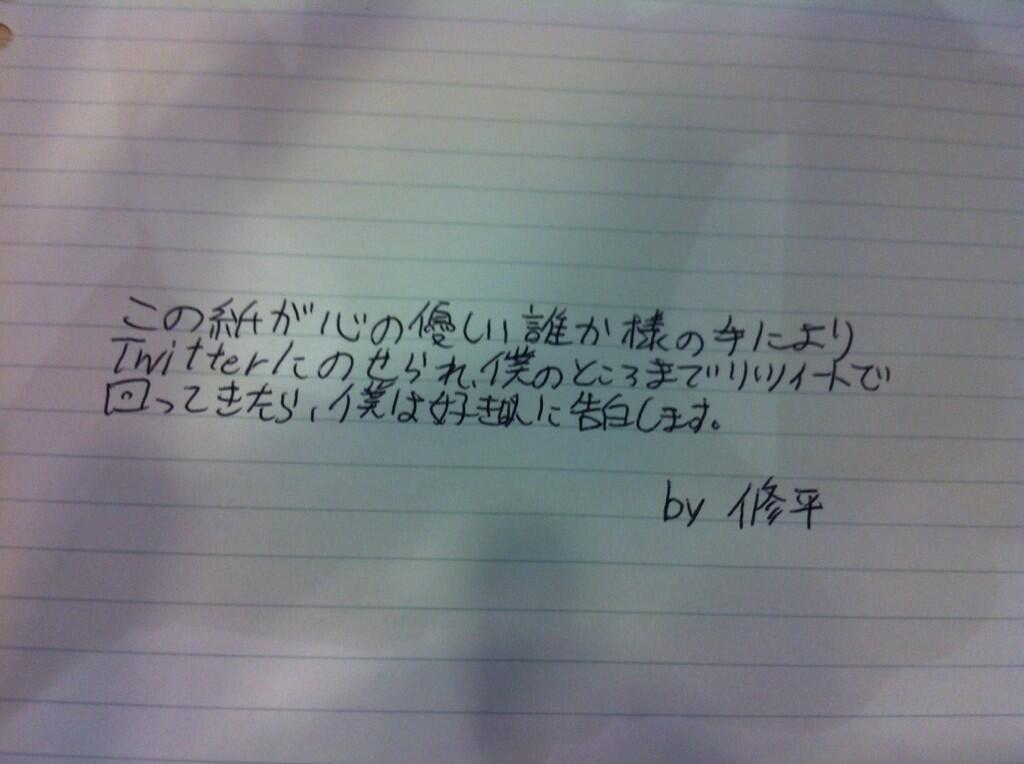 この紙が心の優しい誰か様の手により
Twitterにのせられ、僕のところまでリツイートで
回ってきたら、僕は好きな人に告白します。
by 修平